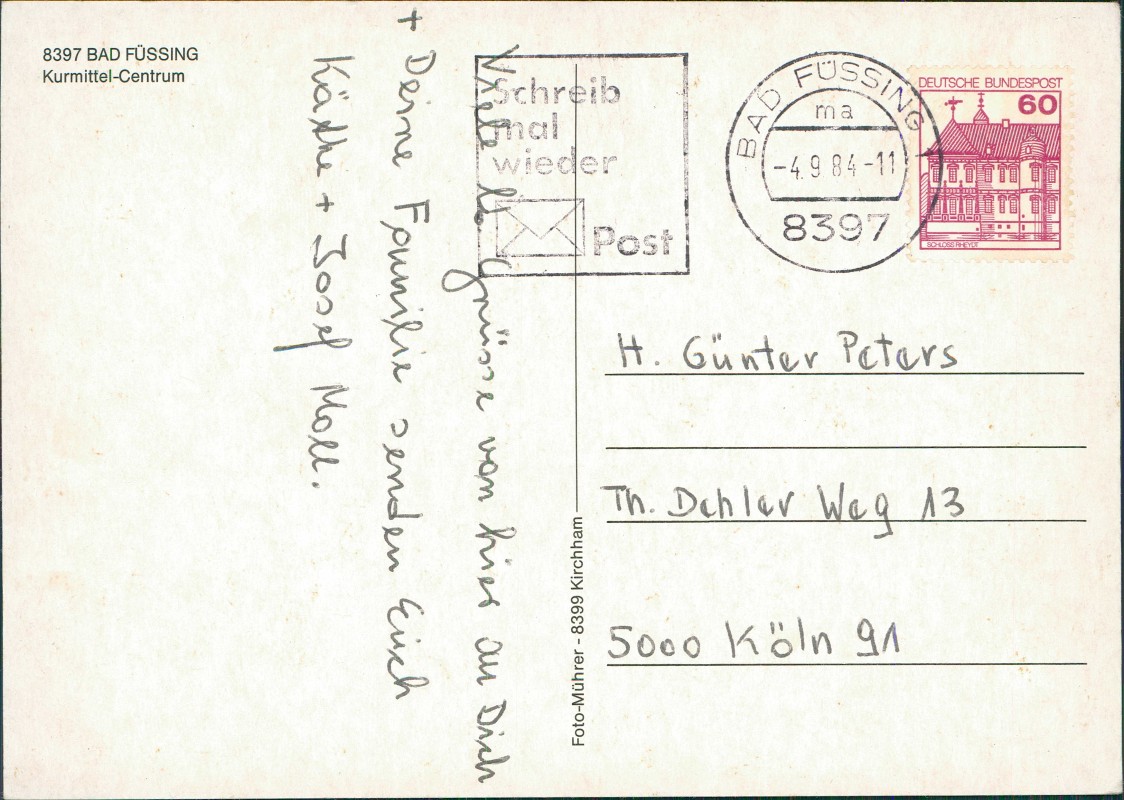 8397 BAD FÜSSING
Kurmittel-Centrum
Viele lb. Grüsse von hier an Dich
+ Deine Familie senden Euch
Käthe + Josef Moll.
Schreib
mal
wieder
Post
BAD FÜSSING
ma
-4.9.84-11
8397
DEUTSCHE BUNDESPOST
60
SCHLOSS RHEYDT
H. Günter Peters
Th. Dehler Weg 13
5000 Köln 91
Foto-Mührer - 8399 Kirchham